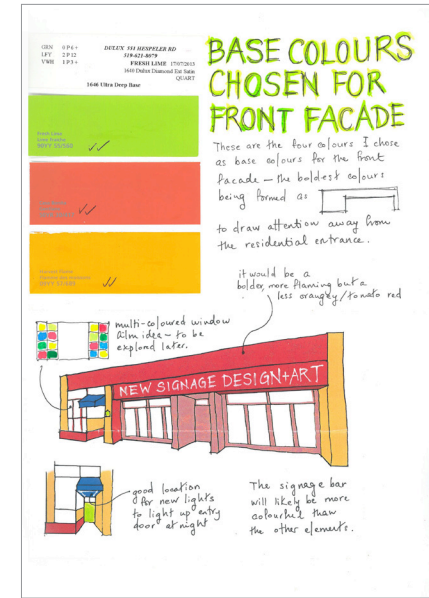 GRN 0 P 6 +
LFY 2 P 12
VWH 1 P 3 +
DULUX 551 HESPELER RD
519-621-8079
FRESH LIME 17/07/2013
1640 Dulux Diamond Ext Satin
QUART
1646 Ultra Deep Base
Fresh Lime
BASE COLOURS
CHOSEN FOR
FRONT FACADE
These are the four colours I chose
as base colours for the front
facade – the boldest colours
being formed as
to draw attention away from
the residential entrance.
it would be a
bolder, more flaming but a
less orangey/tomato red
multi-coloured window
film idea – to be
explored later.
NEW SIGNAGE DESIGN+ART
good location
for new lights
to light up entry
door at night
The signage bar
will likely be more
colourful than
the other elements.